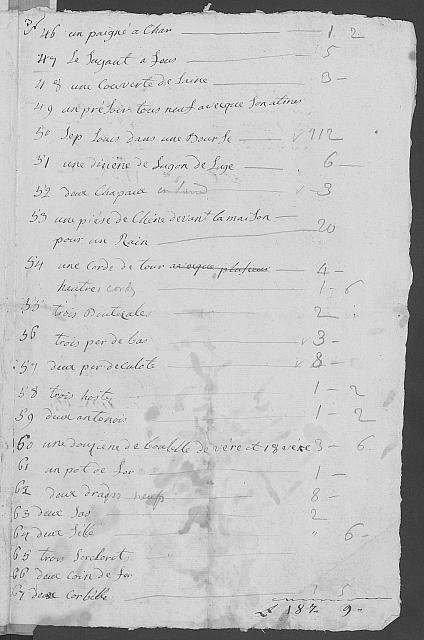 46 un paigné a Chan — 1 2
47 Le Suyant a Sous — 5
48 une Couverte de Laine — 3 —
49 un présoir tous neuf avecque Son
50 Sep Louis dans une Bourse — 112
51 une diziéne de de Lige — 6 —
52 deux Chapaux — 3
53 une piése de Chéne devant la maison —
pour un Rain — 20
54 une Corde de tour avecque plusieur — 4 —
hautres cords — 1 - 6
55 trois — 2
56 trois per de bas — 3 —
57 deux per de calote — 8 —
58 trois — 1 - 2
59 deux antonois — 1 - 2
60 une douziéne de boutelle de vére et 18 vere 3 - 6
61 un pot de for — 1 —
62 deux draps neufs — 8 —
63 deux Sas — 2
64 deux Sibe — " 6 -
65 trois
66 deux Coin de for
67 deux Corbélle — 1 5
£ 187 9 -